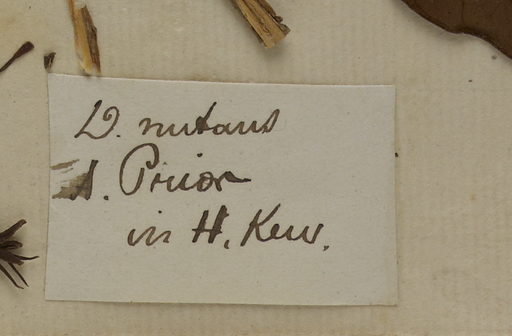 D. nutans
A. Prior
in H. Kew.